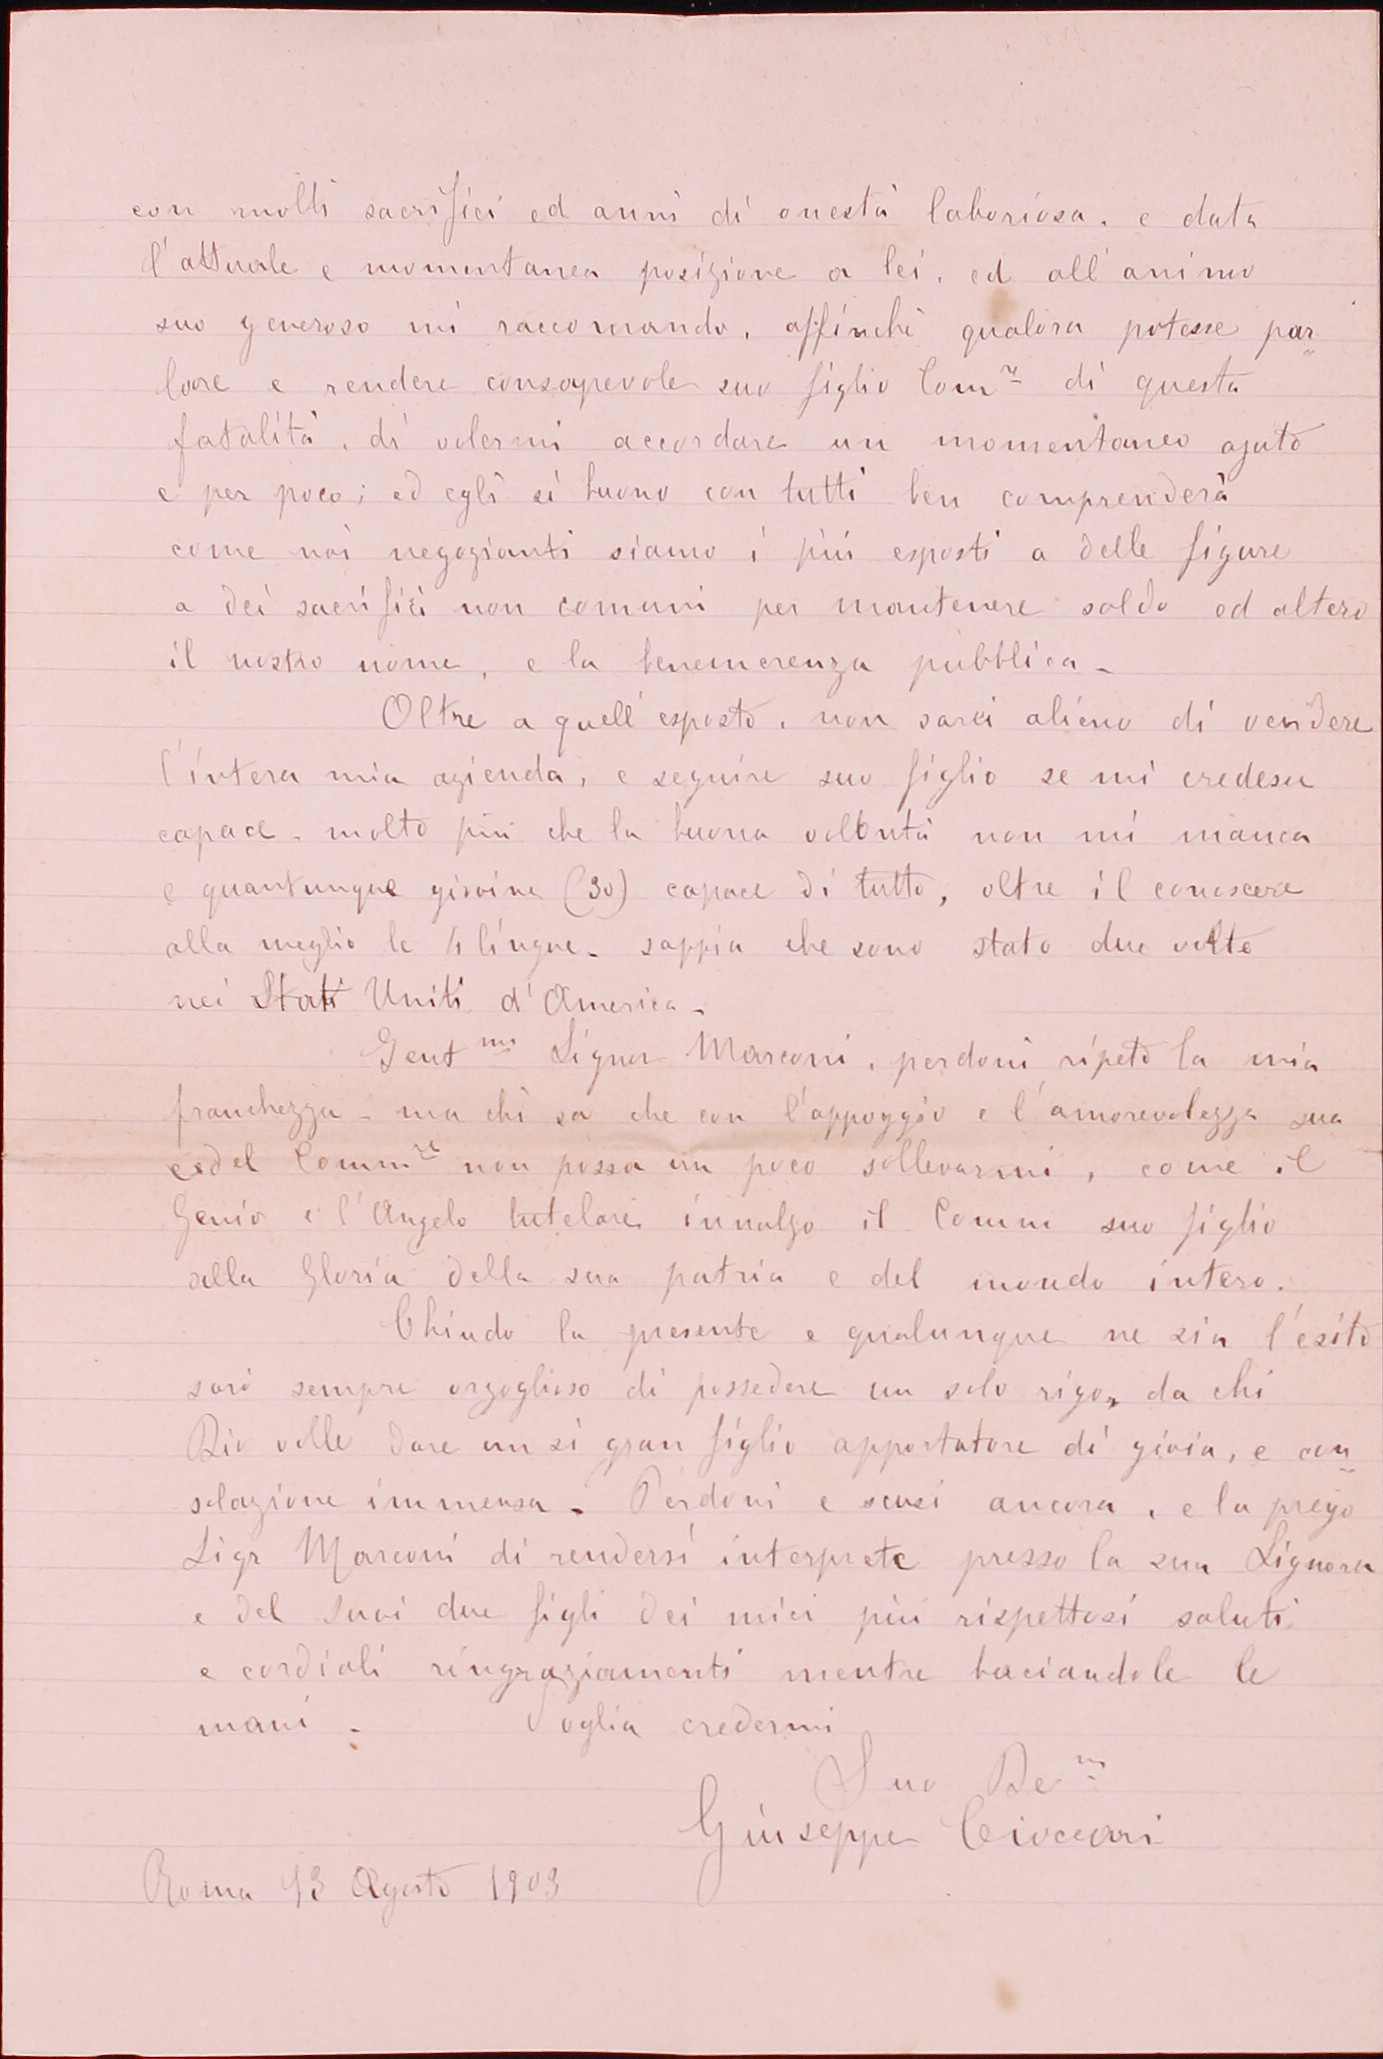 con molti sacrifici ed anni di onestà laboriosa. e data
l'attuale e momentanea posizione a lei, ed all'animo
suo generoso mi raccomando, affinchè qualora potesse par
lare e rendere consapevole suo figlio Com.re di questa
fatalità, di volermi accordare un momentaneo ajuto
e per poco; ed egli sì buono con tutti ben comprenderà
come noi negozianti siamo i più esposti a delle figure
a dei sacrifici non comuni per mantenere saldo ed altero
il nostro nome, e la benemerenza pubblica -
Oltre a quell'esposto, non sarei alieno di vendere
l'intera mia azienda, e seguire suo figlio se mi credesse
capace - molto più che la buona volontà non mi manca
e quantunque giovine (30) capace di tutto, oltre il conoscere
alla meglio le 4 lingue - sappia che sono stato due volte
nei Stati Uniti d'America -
Gent.mo Signor Marconi, perdoni ripeto la mia
franchezza - ma chi sa che con l'appoggio e l'amorevolezza sua
e del Comm.re non possa un poco sollevarmi, come il
Genio e l'Angelo tutelare innalzo il Comm suo figlio
alla Gloria della sua patria e del mondo intero.
Chiudo la presente e qualunque ne sia l'esito
sarò sempre orgoglioso di possedere un solo rigo, da chi
Dio volle dare un sì gran figlio apportatore di gioia, e con
solazione immensa - Perdoni e scusi ancora, e la prego
Sigr Marconi di rendersi interprete presso la sua Signora
e del suoi due figli dei miei più rispettosi saluti
e cordiali ringraziamenti mentre baciandole le
mani - Voglia credermi
Suo De.mo
Giuseppe Cioccari
Roma 13 Agosto 1903